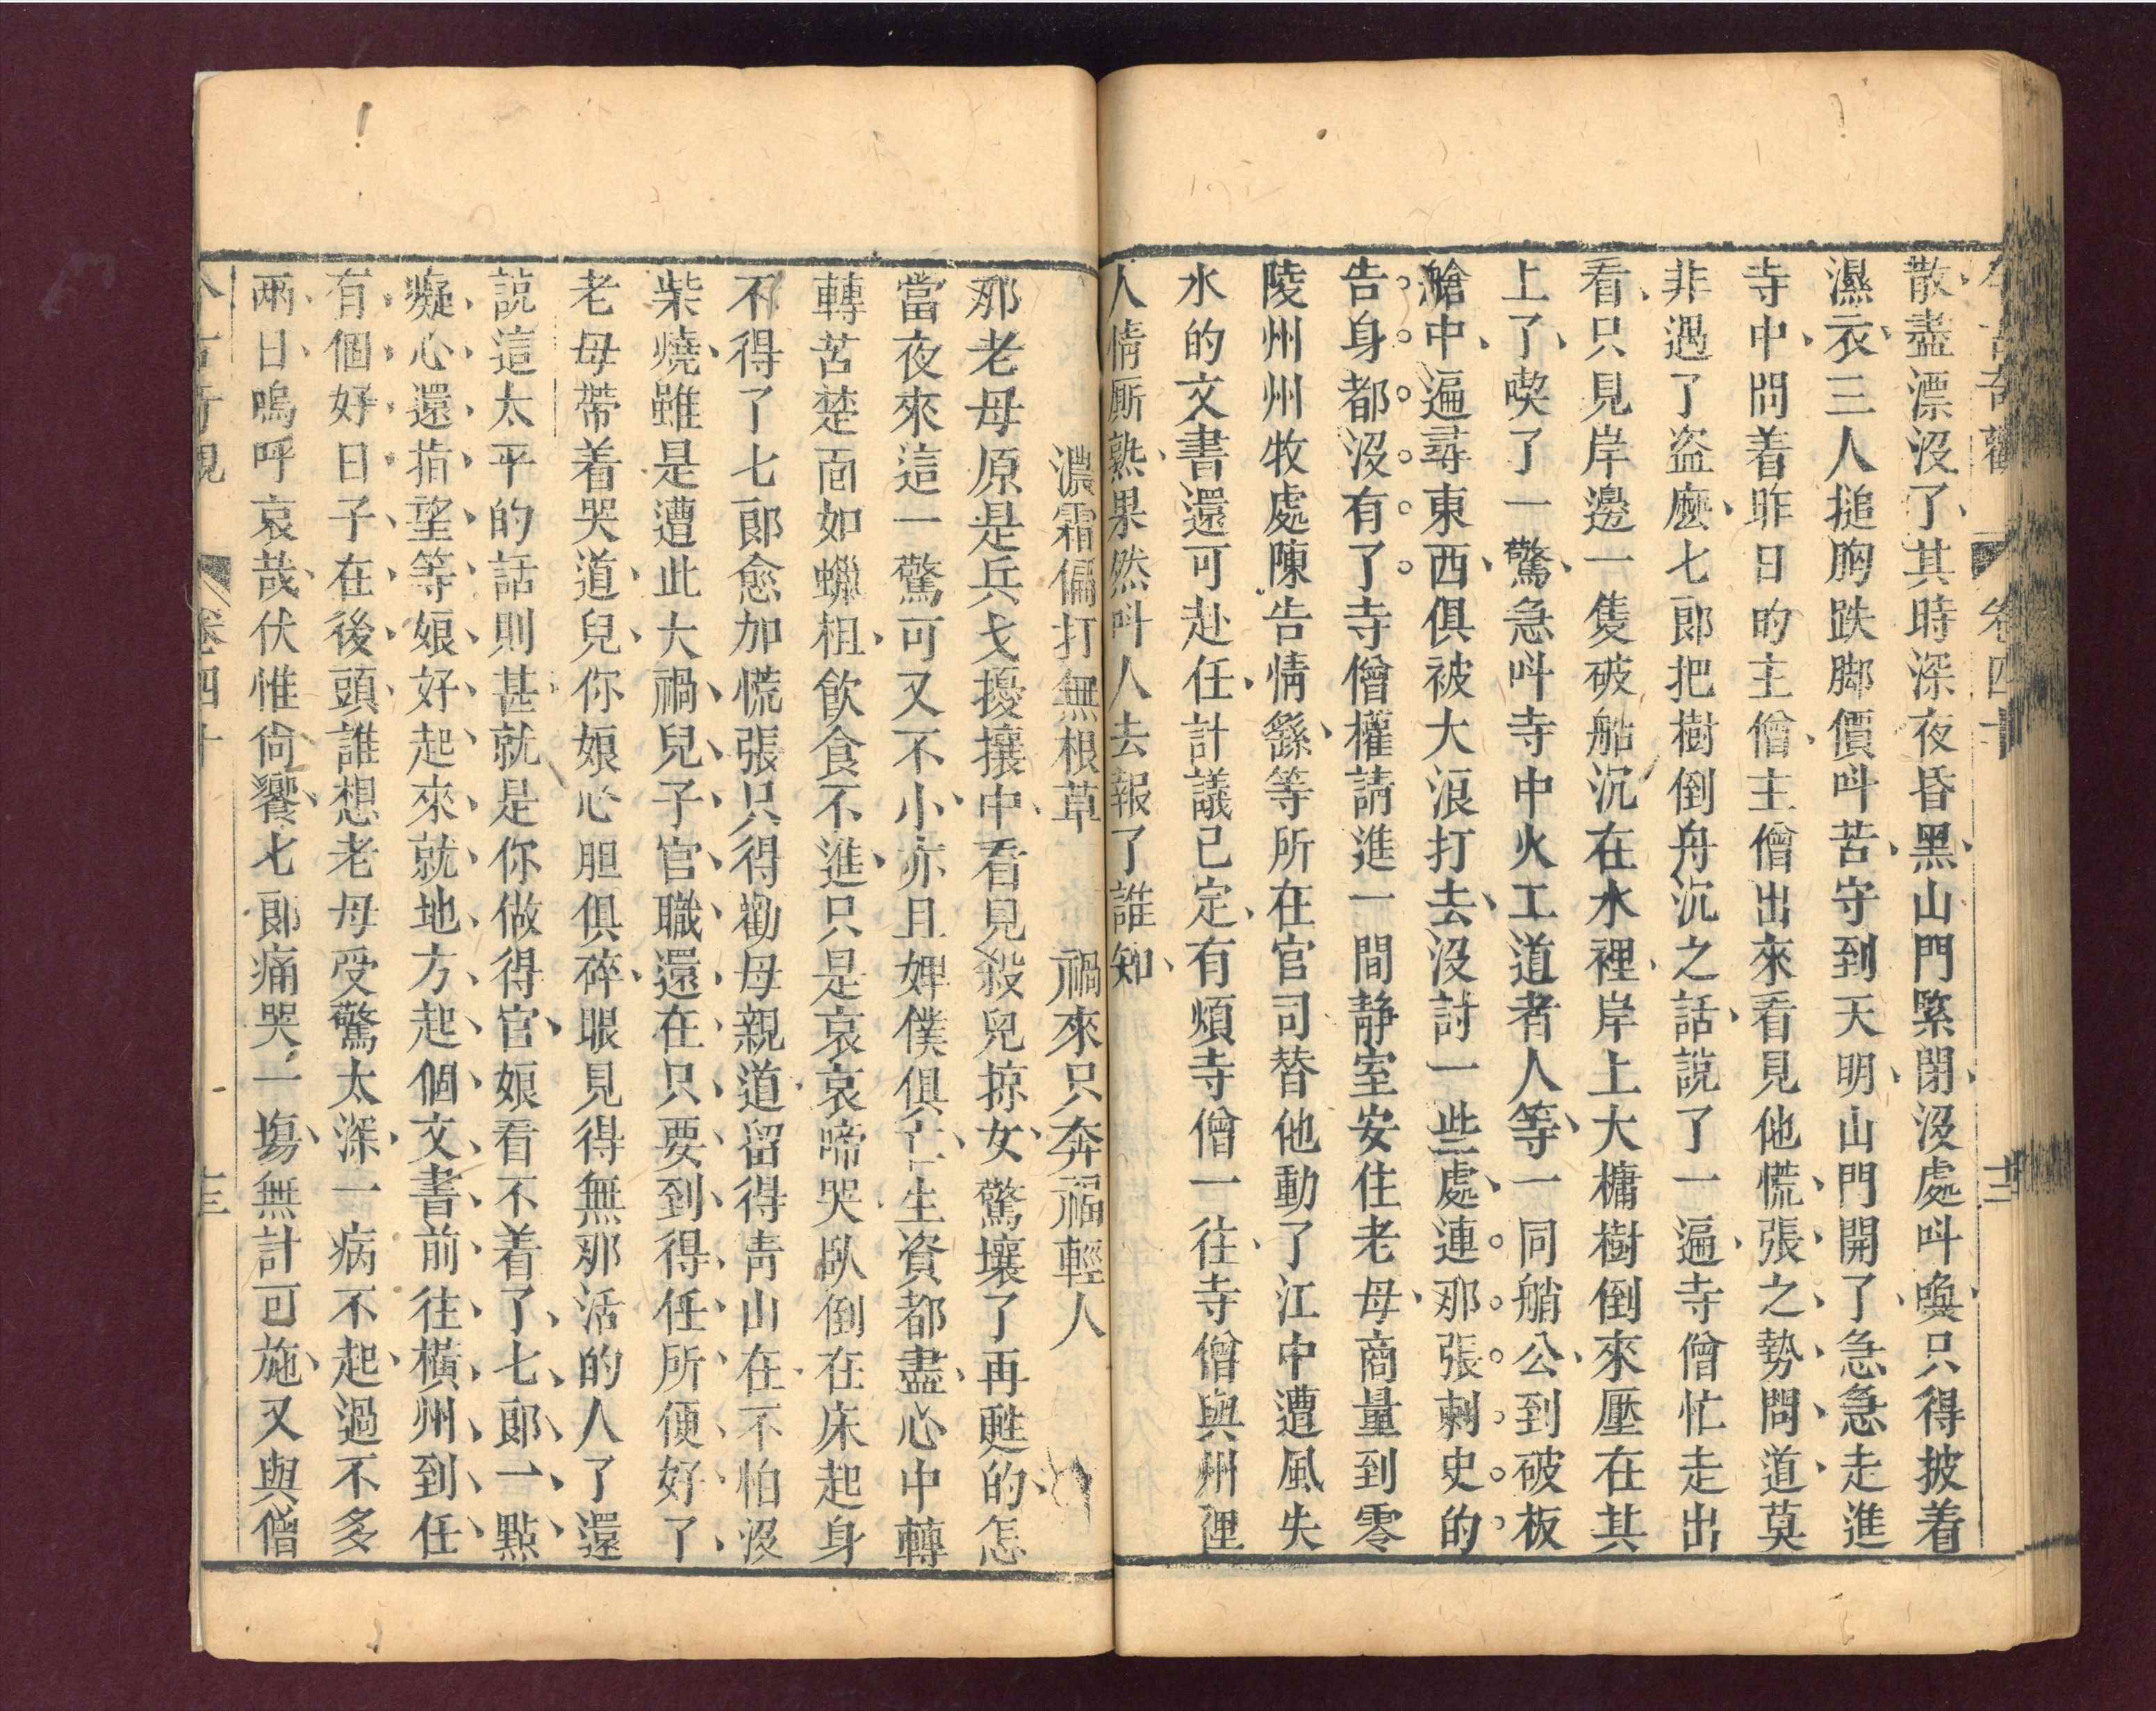 今古奇觀 卷四十 十二
散盡漂沒了其時深夜昏黑山門緊閉沒處呌喚只得披着
濕衣三人搥胸跌脚價呌苦守到天明山門開了急急走進
寺中問着昨日的主僧主僧出來看見他慌張之勢問道莫
非遇了盜麼七郎把樹倒舟沉之話說了一遍寺僧忙走出
看只見岸邊一隻破船沉在水裡岸上大槦樹倒來壓在其
上了喫了一驚急呌寺中火工道者人等一同艄公到破板
艙中遍尋東西俱被大浪打去沒討一些處連那張刺史的
告身都沒有了寺僧權請進一間靜室安住老母商量到零
陵州州牧處陳告情繇等所在官司替他動了江中遭風失
水的文書還可赴任計議已定有煩寺僧一往寺僧與州裡
人情厮熟果然呌人去報了誰知
濃霜偏打無根草 禍來只奔福輕人
那老母原是兵戈擾攘中看見殺兒掠女驚壞了再甦的怎
當夜來這一驚可又不小亦且婢僕俱亡生資都盡心中轉
轉苦楚面如蠟柤飲食不進只是哀哀啼哭臥倒在床起身
不得了七郎愈加慌張只得勸母親道留得青山在不怕沒
柴燒雖是遭此大禍兒子官職還在只要到得任所便好了
老母帶着哭道兒你娘心胆俱碎眼見得無那活的人了還
說這太平的話則甚就是你做得官娘看不着了七郎一點
癡心還指望等娘好起來就地方起個文書前往橫州到任
有個好日子在後頭誰想老母受驚太深一病不起過不多
兩日嗚呼哀哉伏惟尚饗七郎痛哭一塲無計可施又與僧
今古奇觀 卷四十 十三